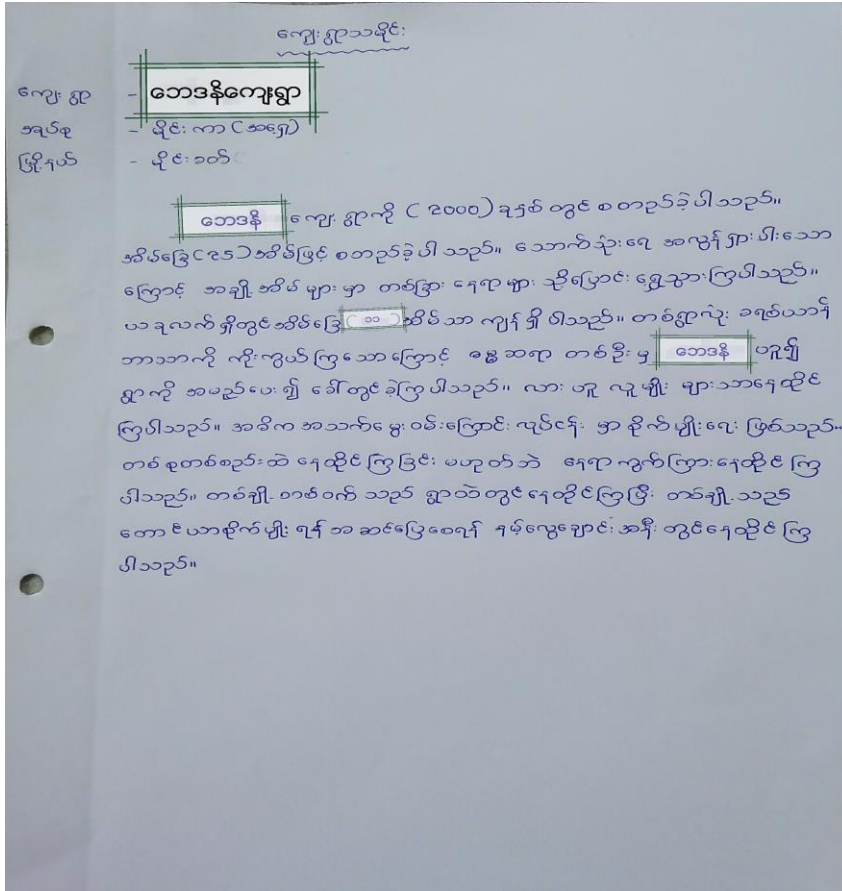 ကျေးရွာသမိုင်း
ကျေးရွာ - ဘေဒနိကျေးရွာ
အုပ်စု - မိုင်းကာ (အရှေ့)
မြို့နယ် - မိုင်းခတ်
ဘေဒနိ ကျေးရွာကို (2000) ခုနှစ်တွင် စတည်ခဲ့ပါသည်။
အိမ်ခြေ(၃၅)အိမ်ဖြင့် စတည်ခဲ့ပါသည်။ သောက်သုံးရေ အလွန်ရှားပါးသော
ကြောင့် အချို့အိမ်များမှာ တစ်ခြားနေရာများ သို့ပြောင်းရွှေ့သွားကြပါသည်။
ယခုလက်ရှိတွင်အိမ်ခြေ(၁၁)အိမ်သာ ကျန်ရှိပါသည်။ တစ်ရွာလုံး ခရစ်ယာန်
ဘာသာကို ကိုးကွယ်ကြသောကြောင့် ဓမ္မဆရာ တစ်ဦးမှ ဘေဒနိ ဟူ၍
ရွာကို အမည်ပေး၍ ခေါ်တွင်ခဲ့ကြပါသည်။ လားဟူ လူမျိုး များသာနေထိုင်
ကြပါသည်။ အဓိက အသက်မွေးဝမ်းကြောင်း လုပ်ငန်းမှာ စိုက်ပျိုးရေး ဖြစ်သည်။
တစ်စုတစ်စည်းထဲ နေထိုင်ကြခြင်း မဟုတ်ဘဲ နေရာကွက်ကြားနေထိုင်ကြ
ပါသည်။ တစ်ချို့တစ်ဝက်သည် ရွာထဲတွင်နေထိုင်ကြပြီး တစ်ချို့သည်
တောင်ယာစိုက်ပျိုးရန် အဆင်ပြေစေရန် နမ့်လွေချောင်းအနီးတွင်နေထိုင်ကြ
ပါသည်။